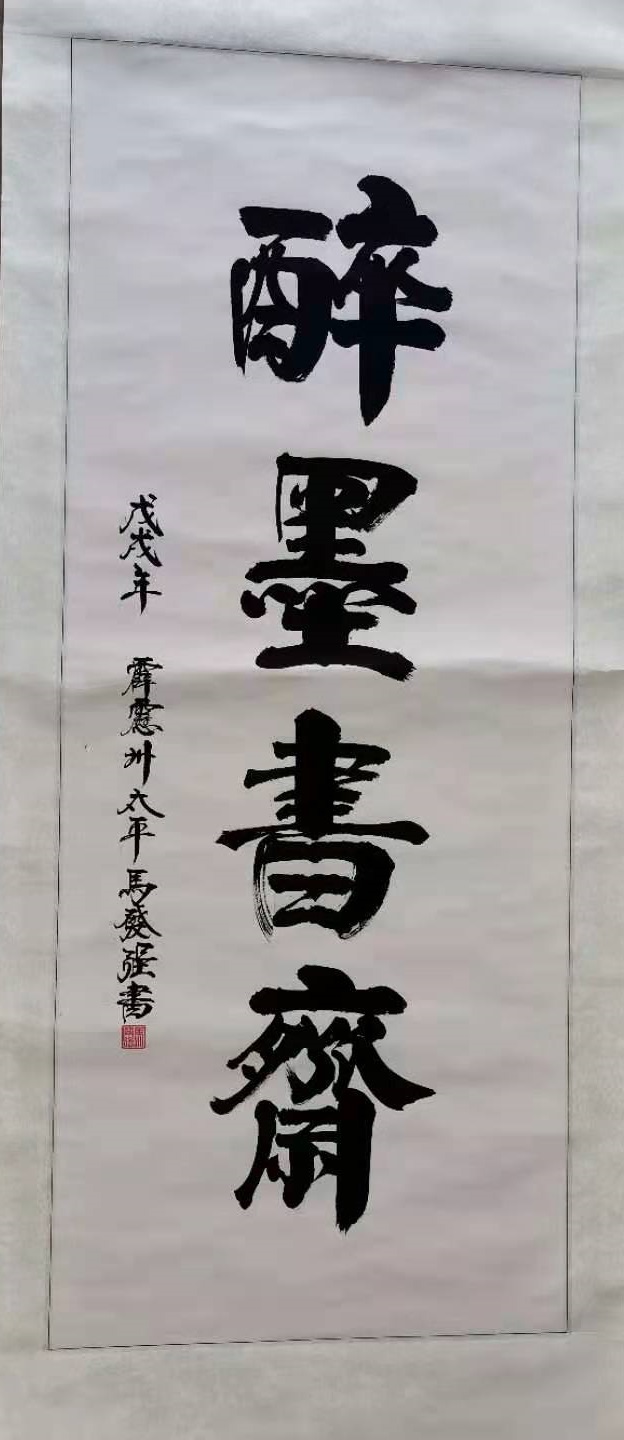 醉墨書齋
戊戌年 霹靂州太平馬發强書